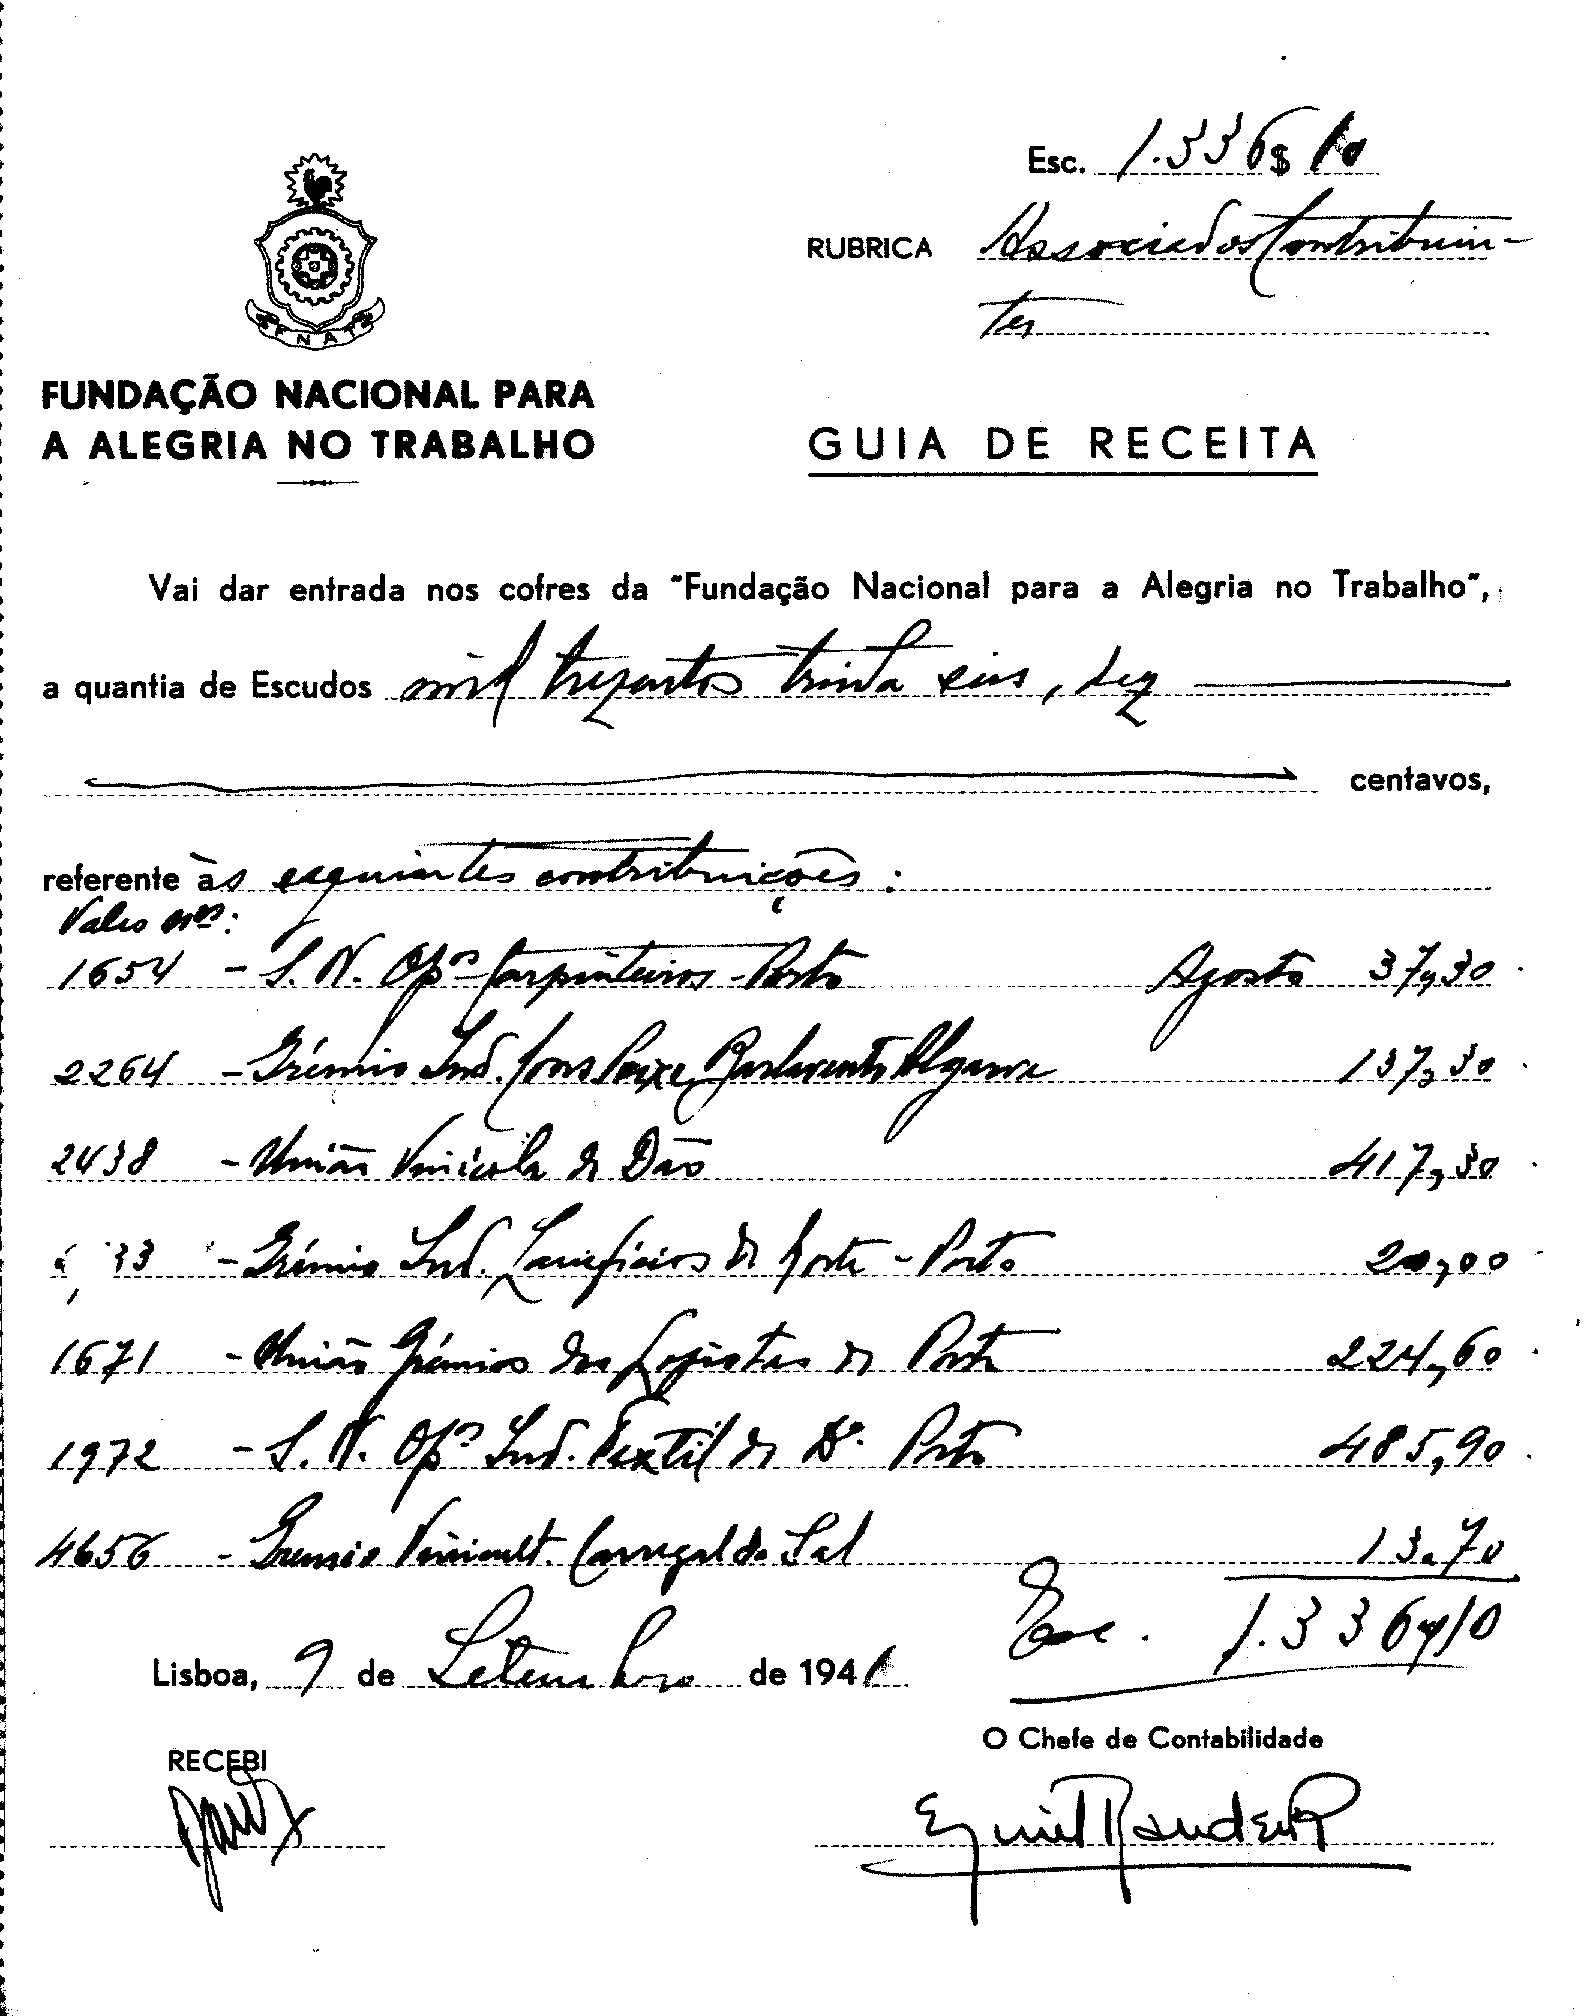 Esc. 1.336$10
RUBRICA Associados Contribuin-
tes
FNAT
FUNDAÇÃO NACIONAL PARA
A ALEGRIA NO TRABALHO
GUIA DE RECEITA
Vai dar entrada nos cofres da "Fundação Nacional para a Alegria no Trabalho",
a quantia de Escudos mil trezentos trinta seis, dez
centavos,
referente às seguintes contribuições:
Vales nos:
1654 - S. N. Opos Carpinteiros - Porto Agosto 37,30
2264 - Grémio Ind. Cons Peixe Barlavento Algarve 137,30
2438 - União Vinícola do Dão 417,30
33 - Grémio Ind. Lanifícios do Norte - Porto 20,00
1671 - União Grémios dos Lojistas do Porto 224,60
1972 - S. N. Opos Ind. Textil do Do. Porto 485,90
4656 - Gremio Vinicult. Carregal do Sal 13.70
Esc. 1.336,10
Lisboa, 9 de Setembro de 1941
O Chefe de Contabilidade
RECEBI